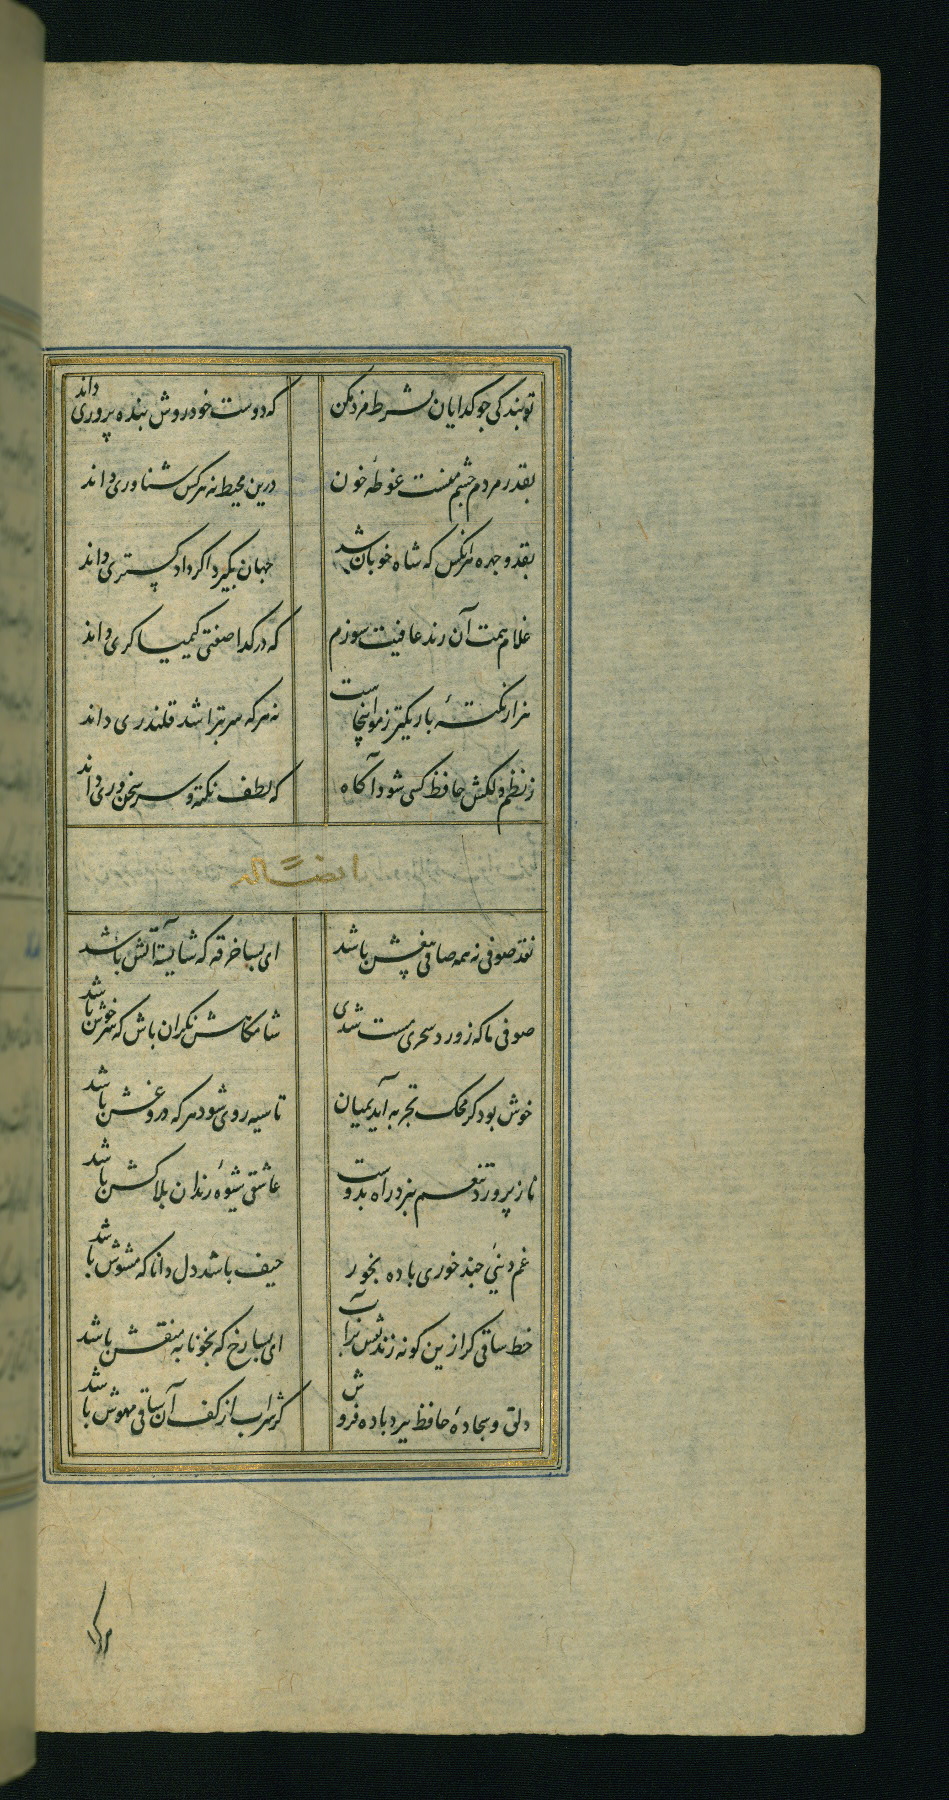 تو بندگی چو گدایان بشرط مزد مکن که دوست خود روش بنده پروری داند
بقدر مردم چشم منست غوطۀ خون درین محیط نه هر کس شناوری داند
بقد و چهره هر آنکس که شاه خوبان شد جهان بگیرد اگر دادگستری داند
غلام همت آن رند عافیت سوزم که در گدا صفتی کیمیاگری داند
هزار نکتۀ باریکتر ز مو اینجاست نه هر که سر بتراشد قلندری داند
ز نظم دلکش حافظ کسی شود آگاه که لطف نکته و سر سخن وری داند
ایضاً له
نقد صوفی نه همه صافی بیغش باشد ای بسا خرقه که شایستۀ آتش باشد
صوفی ما که ز ورد سحری مست شدی شامگاهش نگران باش که سرخوش باشد
خوش بود گر محک تجربه آید بمیان تا سیه روی شود هر که دروغش باشد
ناز پرورد تنعم نبرد راه بدوست عاشقی شیوۀ رندان بلاکش باشد
غم دنیی چند خوری باده بخور حیف باشد دل دانا که مشوش باشد
خط ساقی گر ازین گونه زند نقش بر آب ای بسا رخ که بخونابه منقش باشد
دلق و سجادۀ حافظ ببرد باده فروش گر شراب از کف آن ساقی مهوش باشد